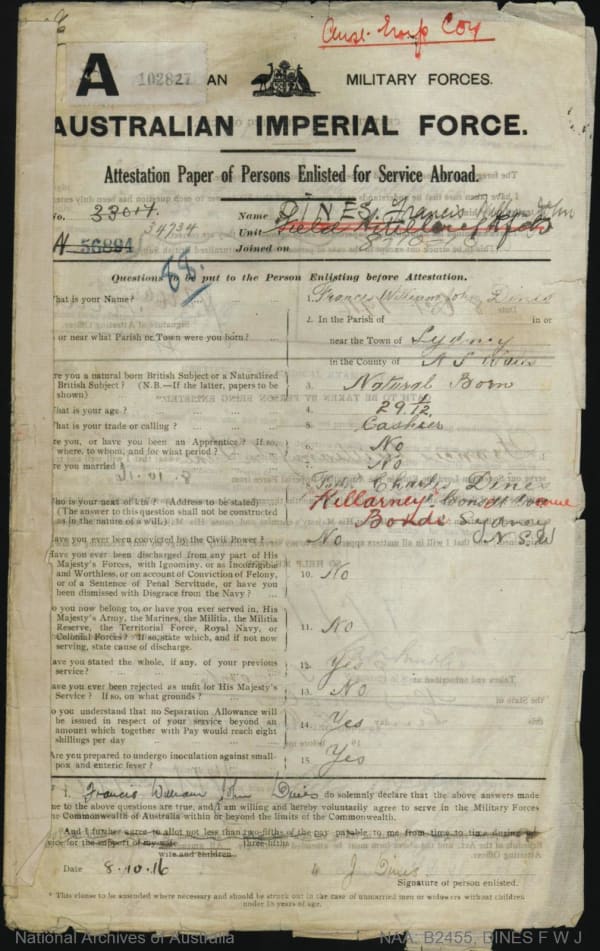 Aust. Corp Coy
A
102827
AN
MILITARY FORCES.
AUSTRALIAN IMPERIAL FORCE.
Attestation Paper of Persons Enlisted for Service Abroad.
No. 33017. Name DINES, Francis William John
34734 Unit Field Artillery
N 56884 Joined on 8-10-16
88.
Questions to be put to the Person Enlisting before Attestation.
hat is your Name? ... 1. Francis William John Dines
2. In the Parish of in or
or near what Parish or Town were you born? ... near the Town of Sydney
in the County of N S Wales
re you a natural born British Subject or a Naturalized
British Subject? (N.B.—If the latter, papers to be
shown) 3. Natural Born
hat is your age? ... 4. 29 1/12
hat is your trade or calling? ... 5. Cashier
re you, or have you been an Apprentice? If so,
where, to whom, and for what period? ... 6. No
re you married? ... 7. No
ho is your next of kin? (Address to be stated) ... Charles Dines
(The answer to this question shall not be constructed Killarney
as in the nature of a will.) Bondi Sydney
ave you ever been convicted by the Civil Power? ... No N.S.W
ave you ever been discharged from any part of His
Majesty's Forces, with Ignominy, or as Incorrigible
and Worthless, or on account of Conviction of Felony, 10. No
or of a Sentence of Penal Servitude, or have you
been dismissed with Disgrace from the Navy? ...
o you now belong to, or have you ever served in, His
Majesty's Army, the Marines, the Militia, the Militia
Reserve, the Territorial Force, Royal Navy, or 11. No
Colonial Forces? If so, state which, and if not now
serving, state cause of discharge.
ave you stated the whole, if any, of your previous
service? ... 12. Yes
ave you ever been rejected as unfit for His Majesty's
Service? If so, on what grounds? 13. No
o you understand that no Separation Allowance will
be issued in respect of your service beyond an
amount which together with Pay would reach eight 14. Yes
shillings per day
Are you prepared to undergo inoculation against small-
pox and enteric fever? 15. Yes
I, Francis William John Dines do solemnly declare that the above answers made
me to the above questions are true, and I am willing and hereby voluntarily agree to serve in the Military Forces
he Commonwealth of Australia within or beyond the limits of the Commonwealth.
And I further agree to allot not less than two-fifths of the pay payable to me from time to time during
vice for the support of my wife three-fifths
wife and children
Date 8.10.16 J Dines
Signature of person enlisted.
* This clause to be amended where necessary and should be struck out in the case of unmarried men or widowers without children
under 18 years of age.
National Archives of Australia NAA: B2455, DINES F W J